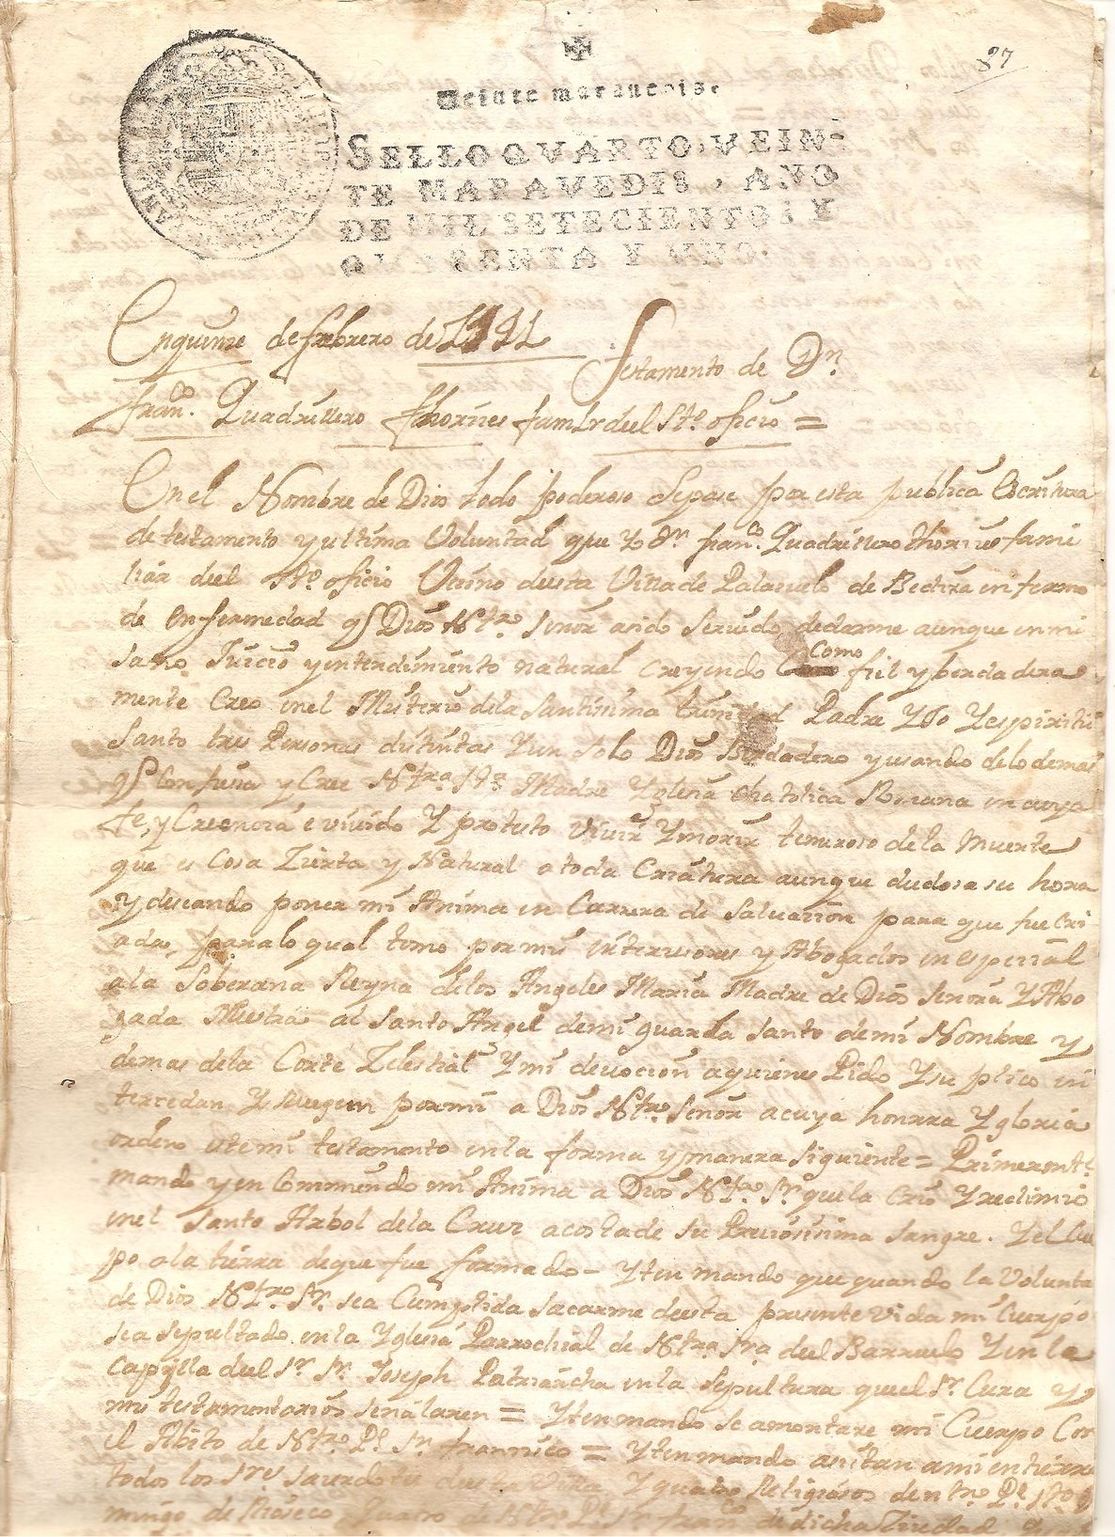 87
Veinte marauedis.
SELLO QVARTO, VEIN-
TE MARAVEDIS, AÑO
DE MIL SETECIENTOS Y
QUARENTA Y UNO.
En quinse de febrero de 1741
Testamento de Dn
Franco. Quadrillero thorices famlr deel Sto. oficio =
En el Nombre de Dios todo poderoso Sepase por esta publica Escritura
de testamento y ultima Voluntad que Yo Dn franco. Quadrillero fami
liar deel Sto. oficio Vecino de esta Villa de Palasuelo de Bedixa enfermo
de enfermedad q Dios Ntro Señor a sido Servido de darme aunque en mi
sano Juicio y entendimiento natural Creyendo Como fiel y berdadera
mente Creo en el Misterio de la Santissima trinidad Padre Yjo Y espiritu
Santo tres Personas distintas Y un Solo Dios Berdadero y usando de lo demas
q Confiesa y Cree Ntra Sta Madre Yglesia Chatolica Romana en cuya
fe, y Creencia e vivido Y protesto vivir Y morir temeroso de la Muerte
que es Cosa Zierta y Natural a toda Criatura aunque dudosa su hora
y deseando poner mi Anima en Carrera de Salvacion para que fue Cri
ada, para lo qual tomo por mis intersesores y Abogados en espezial
a la Soberana Reyna de los Angeles Maria Madre de Dios Señora Y Abo
gada Nuestra al Santo Angel de mi guarda Santo de mi Nombre y
demas de la Corte Zelestial Y mi devocion a quienes Pido Y suplico in
tercedan Y Rueguen por mi a Dios Ntro. Señor a cuya honrra Y gloria
ordeno este mi testamento en la forma y manera siguiente = Primeramte
mando y en Commiendo mi Anima a Dios Ntro. Sr que la Crio Y redimio
en el Santo Arbol de la Cruz a costa de su Preciosissima Sangre. Y el Cuer
po a la tierra de que fue formado = Yten mando que quando la Volunta
de Dios Ntro. Sr. sea Cumplida sacarme de esta presente vida mi Cuerpo
sea sepultado en la Yglesia Parrochial de Ntra Sra deel Barruelo Y en la
Capylla deel Sr. Sn. Joseph Patriarcha en la sepultura que el Sr. Cura y
mis testamentarios señalaren = Yten mando se amortaxe mi Cuerpo Con
el Abito de Ntro Pe Sn franzisco = Yten mando asistan a mi entierro
todos los Sres sacerdotes de esta Villa Y quatro Religiosos de ntro. Pe Sto Do
mingo de Rioseco Y quatro de Ntro. Pe Sn franco de dicha